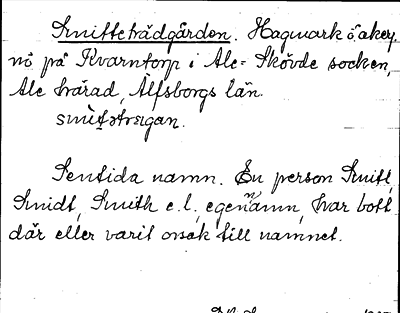 Smitteträdgården. Hagmark o. åker
nö på Kvarntorp i Ale-Skövde socken,
Ale härad, Älfsborgs län.

Sentida namn. En person Smitt,
Smidt, Smith e.l., egennamn, har bott
där eller varit orsak till namnet.